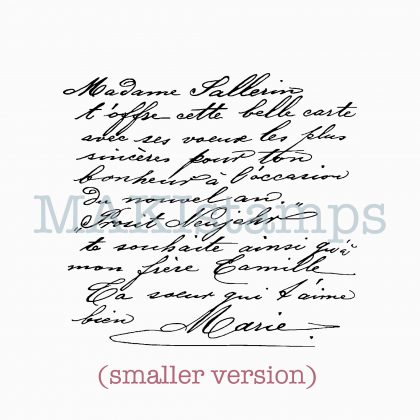 Madame Sallerin
t'offre cette belle carte
avec ses voeux les plus
sincères pour ton
bonheur à l'occasion
du nouvel an.
MAKIstamps
„Prosit Neujahr"
te souhaite ainsi qu'à
mon frère Camille
Ta soeur qui t'aime
bien Marie.
(smaller version)